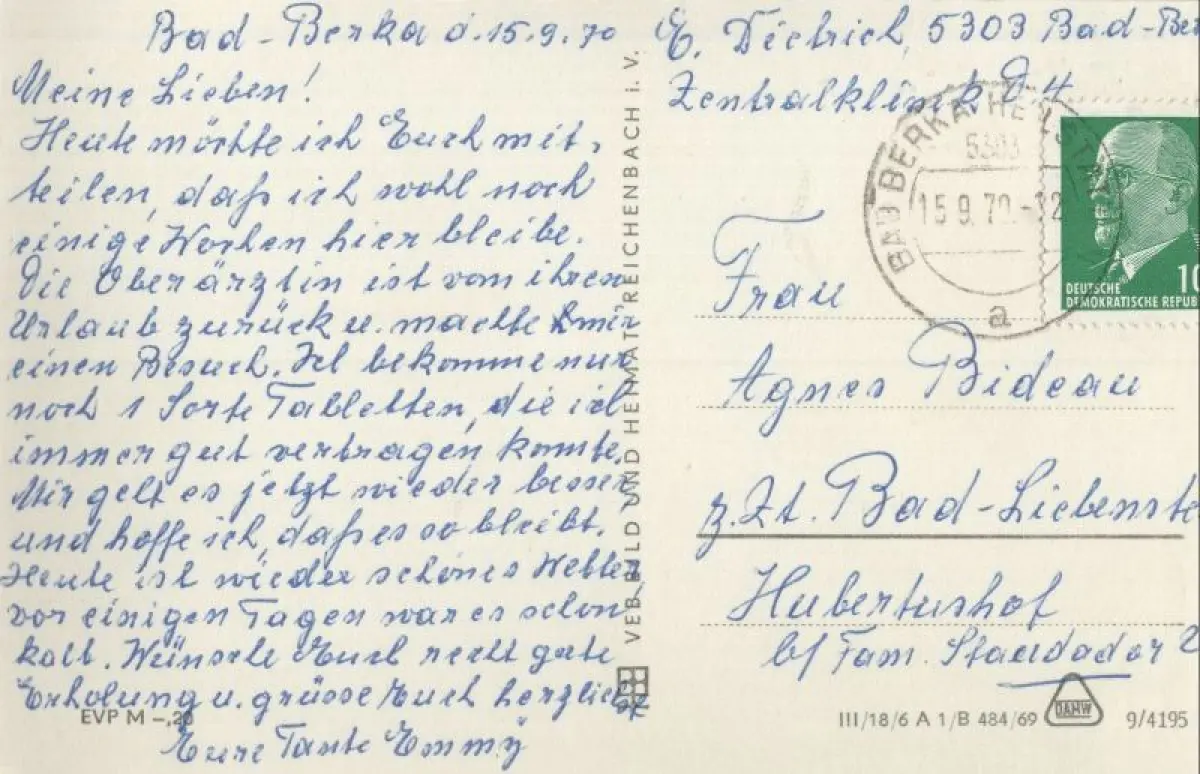 Bad-Berka d. 15.9.70
Meine Lieben!
Heute möchte ich Euch mit-
teilen, daß ich wohl noch
einige Wochen hier bleibe.
Die Oberärztin ist vom ihren
Urlaub zurück u. machte mir
einen Besuch. Ich bekomme nur
noch 1 Sorte Tabletten, die ich
immer gut vertragen konnte.
Mir geht es jetzt wieder besser
und hoffe ich, daß es so bleibt.
Heute ist wieder schönes Wetter,
vor einigen Tagen war es schon
kalt. Wünsche Euch recht gute
Erholung u. grüsse Euch herzlichst
Eure Tante Emmy
EVP M -,20
VEB BILD UND HEIMAT REICHENBACH i. V.
E. Dietrich, 5303 Bad-Ber
Zentralklinik D 4
BAD BERKA
5303
15.9.70.-12
a
DEUTSCHE
DEMOKRATISCHE REPUB
10
Frau
Agnes Bideau
z. Zt. Bad-Liebenste
Hubertushof
b/ Fam. Staudador
III/18/6 A 1/B 484/69
DAHW
9/4195